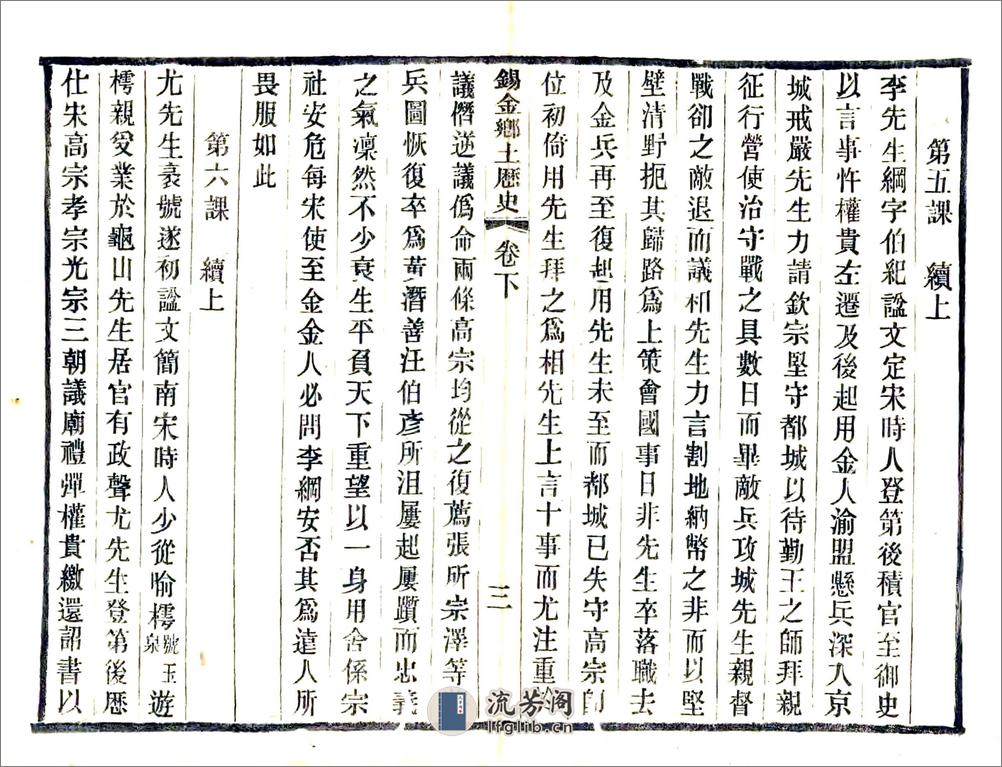 第五課　續上
李先生綱字伯紀諡文定宋時人登第後積官至御史
以言事忤權貴左遷及後起用金人渝盟懸兵深入京
城戒嚴先生力請欽宗堅守都城以待勤王之師拜親
征行營使治守戰之具數日而畢敵兵攻城先生親督
戰卻之敵退而議和先生力言割地納幣之非而以堅
壁清野扼其歸路爲上策會國事日非先生卒落職去
及金兵再至復起用先生未至而都城已失守高宗卽
位初倚用先生拜之爲相先生上言十事而尤注重
錫金鄉土歷史　卷下　三
議僭逆議僞命兩條高宗均從之復薦張所宗澤等
兵圖恢復卒爲黃潛善汪伯彥所沮屢起屢躓而忠義
之氣凜然不少衰生平負天下重望以一身用舍係宗
社安危每宋使至金金人必問李綱安否其爲遠人所
畏服如此
第六課　續上
尤先生袤號遂初諡文簡南宋時人少從喻樗號玉泉遊
樗親受業於龜山先生居官有政聲尤先生登第後歷
仕宋高宗孝宗光宗三朝議廟禮彈權貴繳還詔書以
流芳阁
lfglib.cn